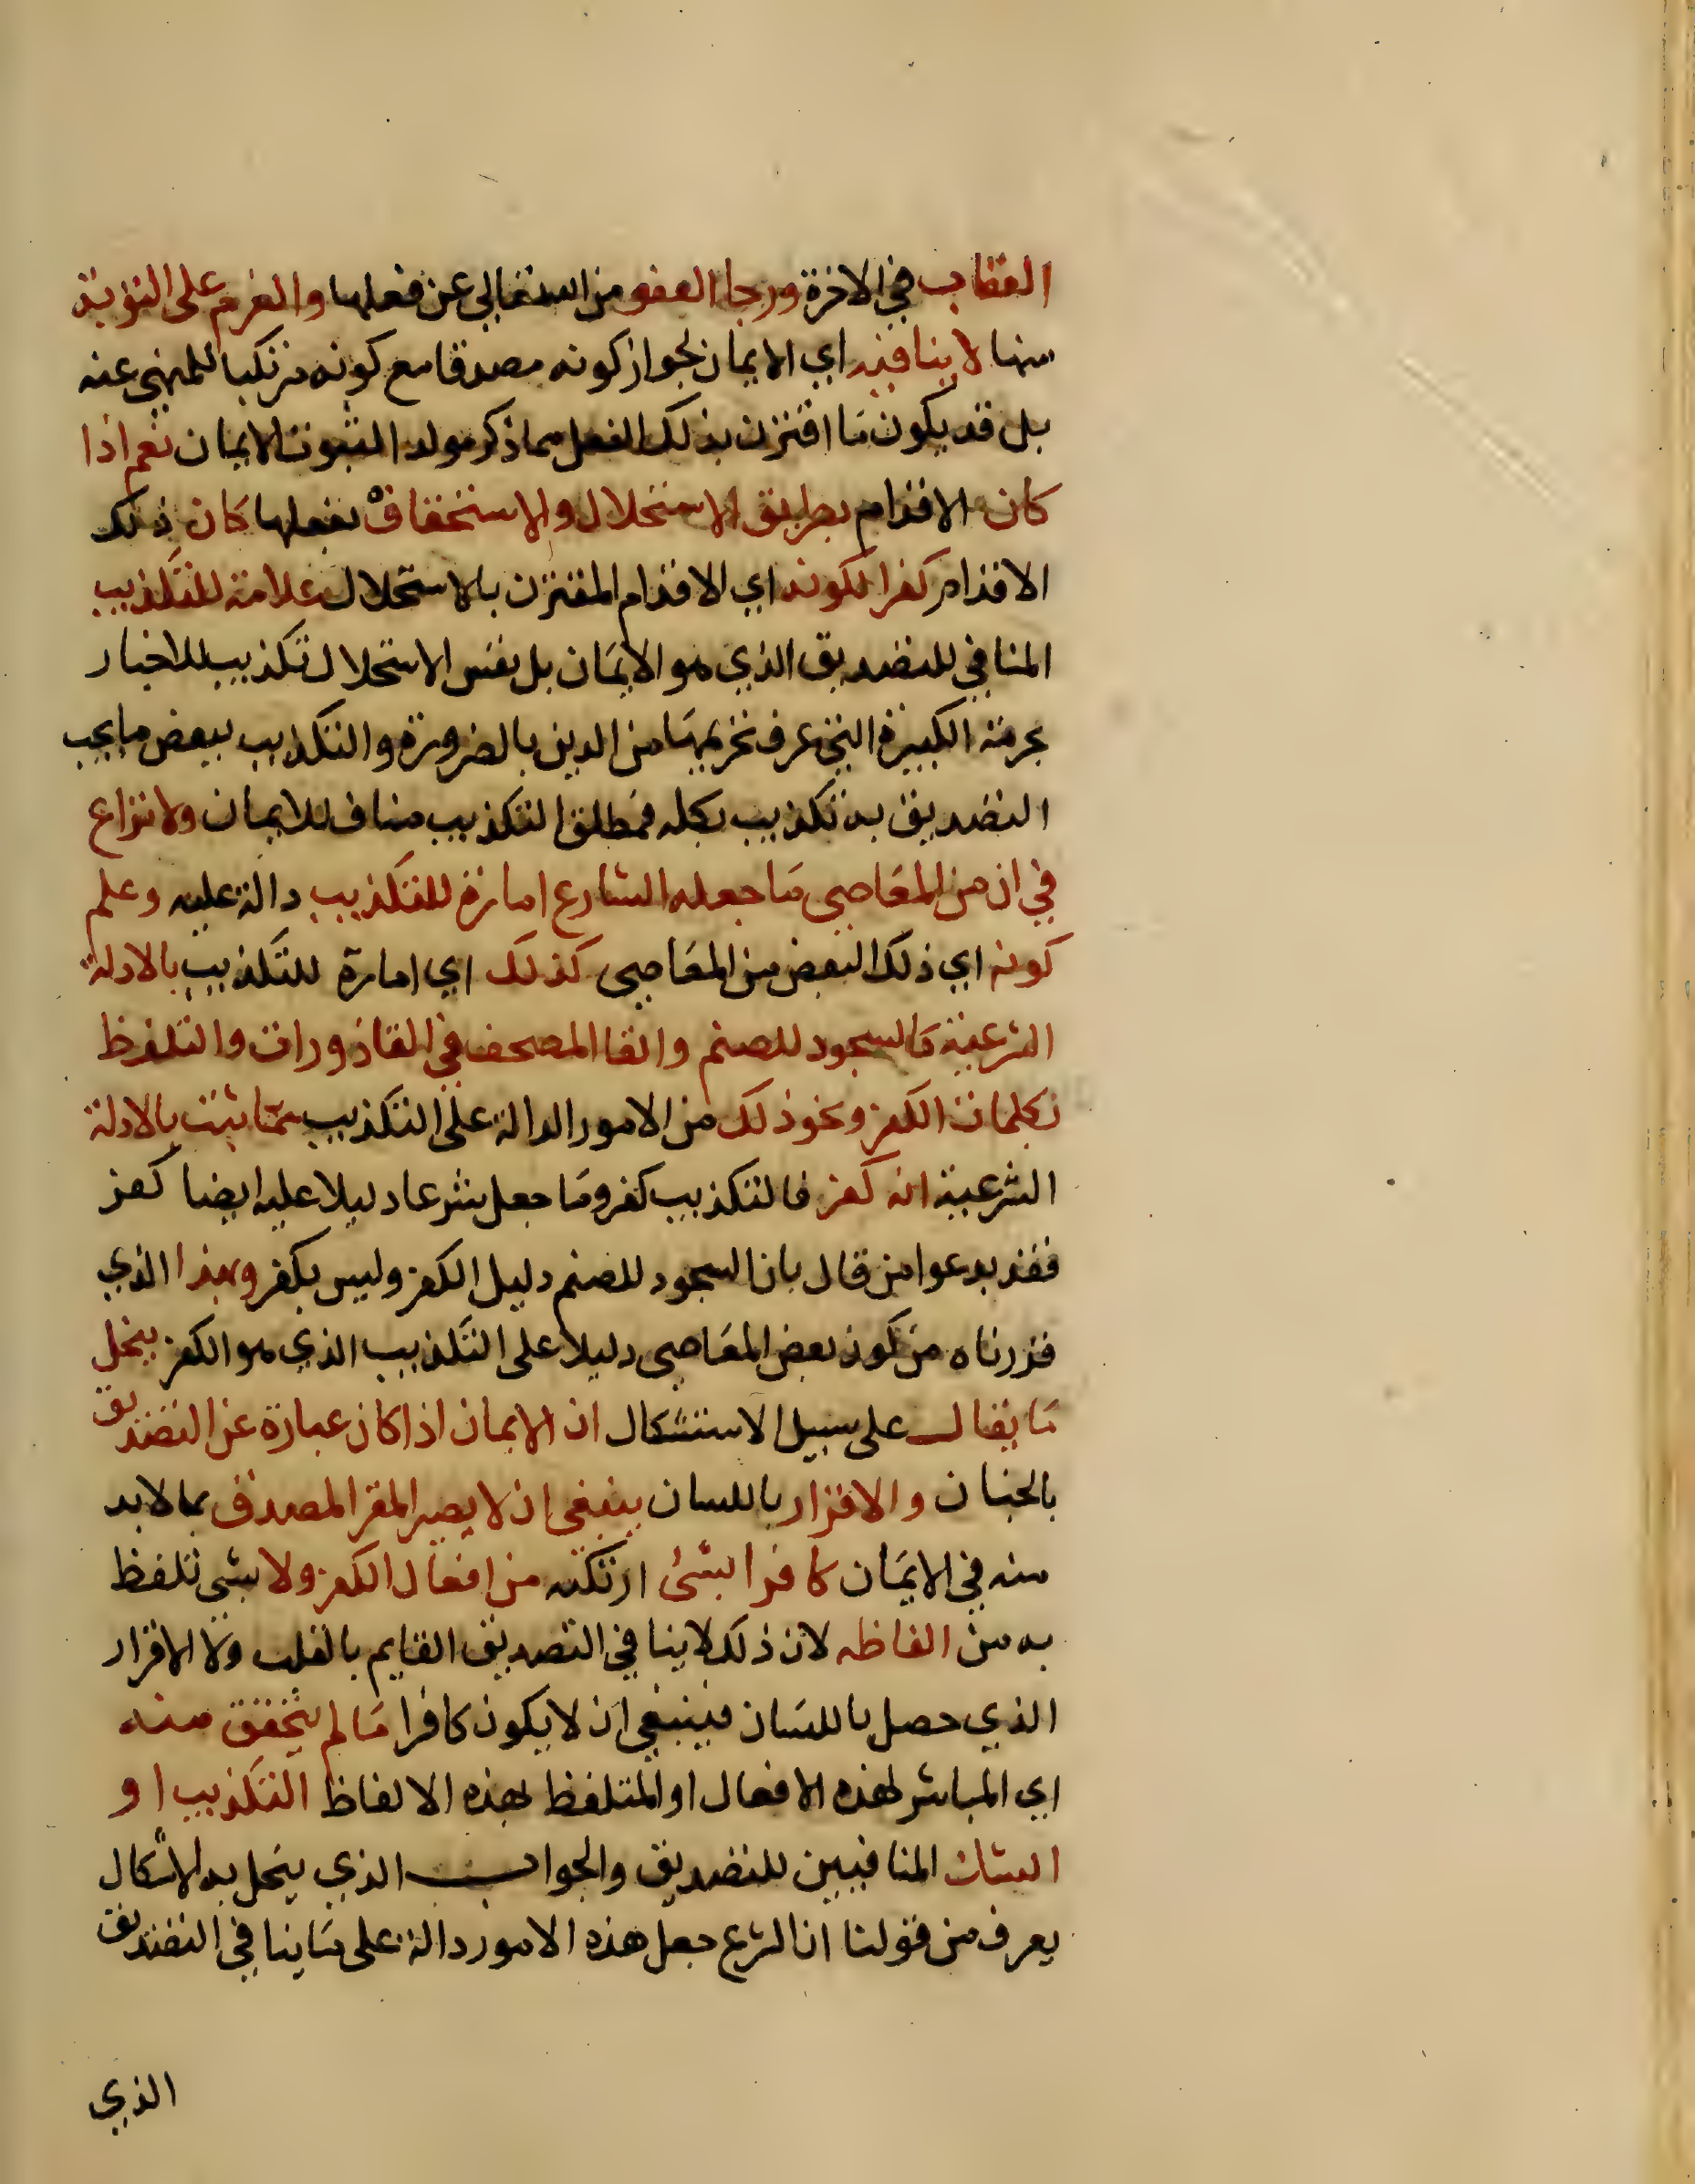 العقاب في الاخرة ورجا العفو من الله تعالي عن فعلها والعزم على التوبة
منها لا ينافيه اي الايمان لجواز كونه مصدقا مع كونه مرتكبا للمنهي عنه
بل قد يكون ما اقترن بذلك الفعل مما ذكر مولد الثبوت الايمان نعم اذا
كان الاقدام بطريق الاستحلال والاستخفاف بفعلها كان ذلك
الاقدام كفرا لكونه اي الاقدام المقترن بالاستحلال علامة للتكذيب
المنافي للتصديق الذي هو الايمان بل نفس الاستحلال تكذيب للاخبار
بحرمة الكبيرة التي عرف تحريمها من الدين بالضرورة والتكذيب ببعض ما يجب
التصديق به تكذيب بكله فمطلق التكذيب مناف للايمان ولا نزاع
في ان من المعاصي ما جعله الشارع امارة للتكذيب دالة عليه وعلم
كونه اي ذلك البعض من المعاصي كذلك اي امارة للتكذيب بالادلة
الشرعية كالسجود للصنم والقا المصحف في القاذورات والتلفظ
بكلمات الكفر ونحو ذلك من الامور الدالة على التكذيب مما يثبت بالادلة
الشرعية انه كفر فالتكذيب كفر وما جعل شرعا دليلا عليه ايضا كفر
فقد بدعوا من قال بان السجود للصنم دليل الكفر وليس بكفر وبهذا الذي
قررناه من كون بعض المعاصي دليلا على التكذيب الذي هو الكفر ينحل
ما يقال على سبيل الاستشكال ان الايمان اذا كان عبارة عن التصديق
بالجنان والاقرار باللسان ينبغي ان لا يصير المقر المصدق بما لابد
منه في الايمان كافرا بشئ ارتكبه من افعال الكفر ولا بشي تلفظ
به من الفاظه لان ذلك لا ينافي التصديق القايم بالقلب ولا الاقرار
الذي حصل باللسان فينبغي ان لا يكون كافرا ما لم يتحقق منه
اي المباشر لهذه الافعال او المتلفظ بهذه الالفاظ التكذيب او
الشك المنافيين للتصديق والجواب الذي ينحل به الاشكال
يعرف من قولنا ان الشرع جعل هذه الامور دالة على ما ينافي التصديق
الذي